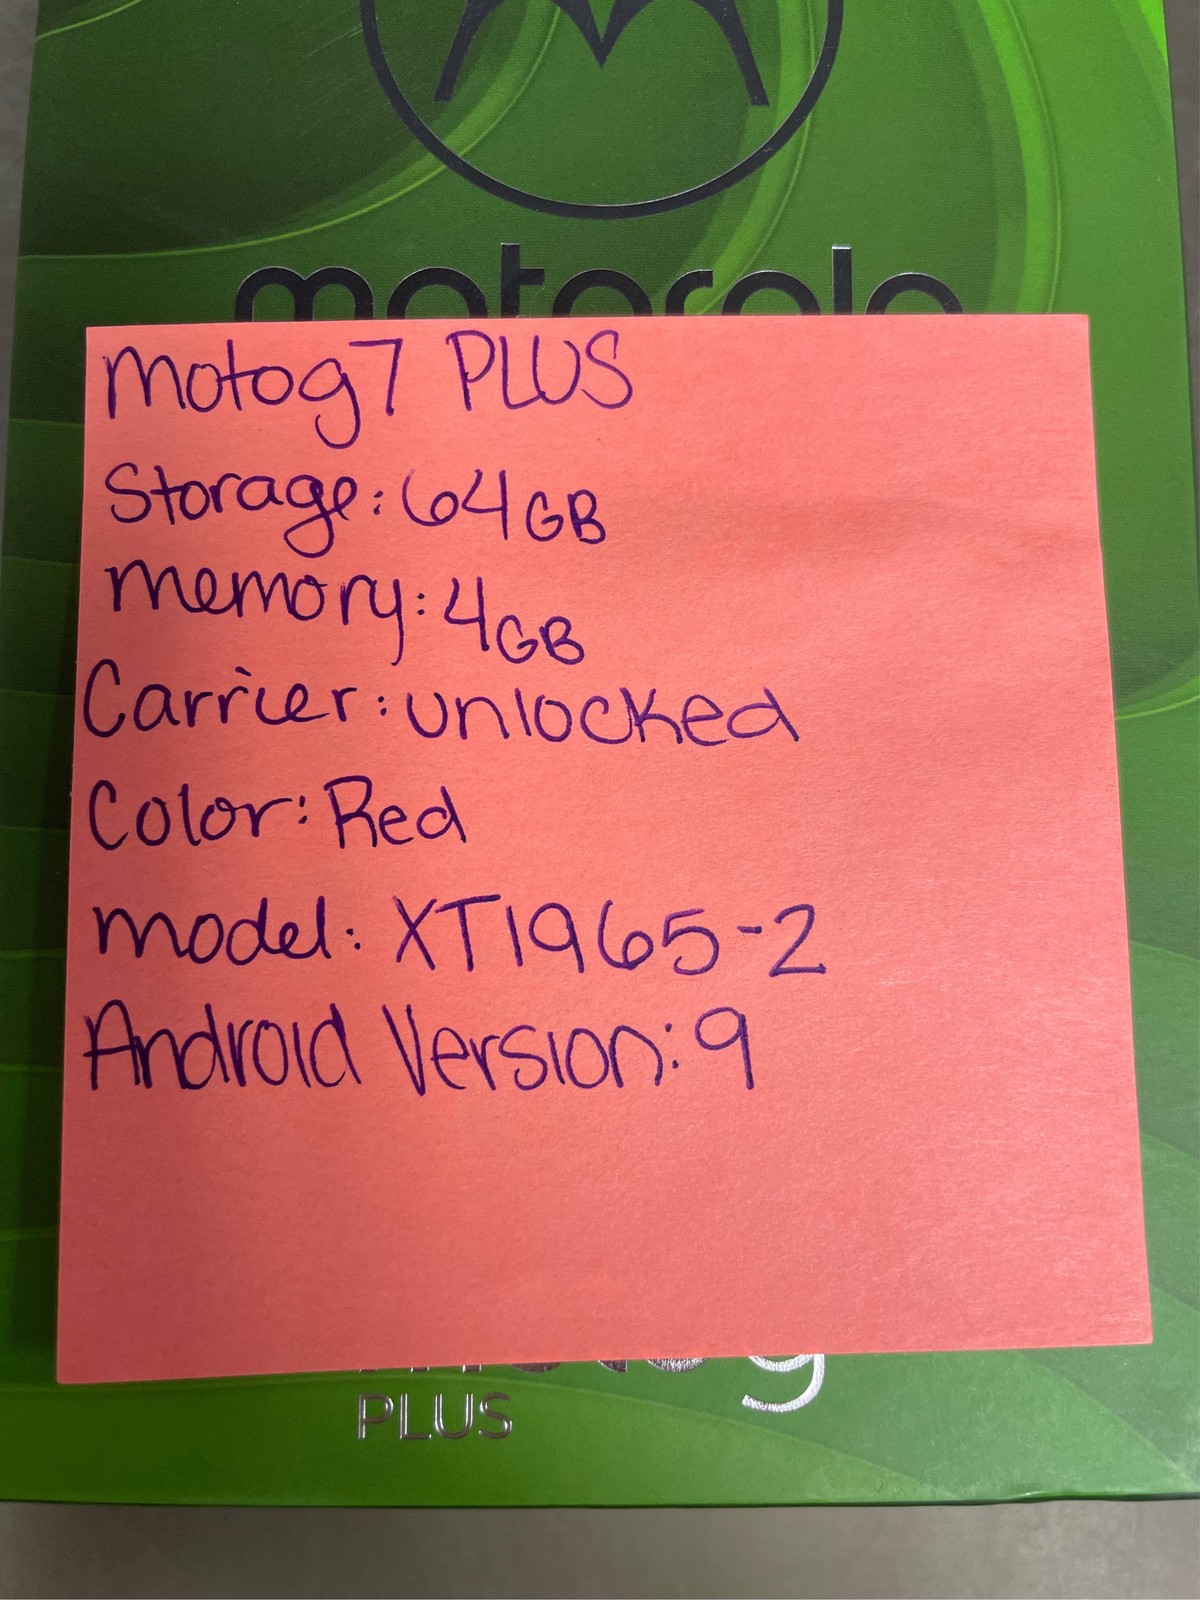 motorola
Motog7 PLUS
Storage: 64GB
Memory: 4GB
Carrier: unlocked
Color: Red
Model: XT1965-2
Android Version: 9
motog
PLUS